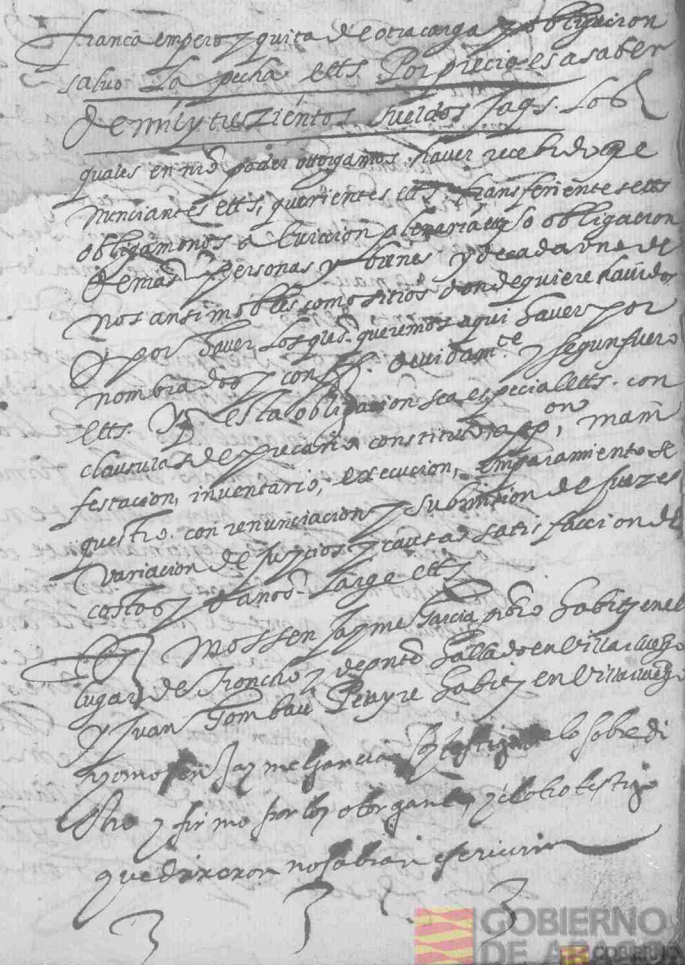 franca empero y quita de otra carga y obligacion
salvo la pecha etts. Por precio es a saber
de mil y trezientos sueldos jaqs. Los
quales en nro poder otorgamos haver recebido Re
nunciantes etts, querientes etts transferientes etts
obligamonos a eviccion plenaria etts so obligacion
de nras personas y bienes y de cada uno de
nos ansi mobles como sitios donde quiere havidos
y por haver los qles queremos aqui haver por
nombrados y conf. devidamte y segun fuero
etts. Y q esta obligacion sea especial etts. con
clausulas de precario constituto appon, mani
festacion, inventario, execucion, emparamiento se
questro. con renunciacion y submission de juezes
variacion de juycios y cautad satisfaccion de
costas y danos. Large etts
Tts Mossen Jayme Garcia pbro habite en el
lugar de Tronchon y de pnte hallado en Villarluengo
y Juan Gombau Perayre habite en Villarluengo
yo mosen Jayme Garcia soy testigo de lo sobredi
cho y firmo por los otorgantes y el otro testigo
que dixeron no sabian escrivir
GOBIERNO
DE AR